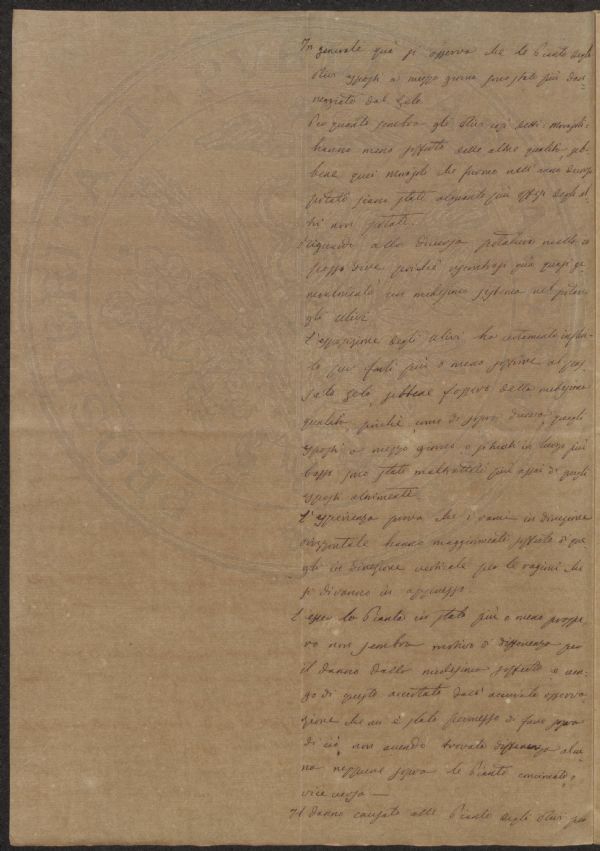 In generale quà si osserva che le Piante degli
Olivi esposti a mezzo giorno sono state più dan-
neggiate dal Gelo.
Per quanto sembra gli Olivi così detti Morajoli
hanno meno sofferto delle altre qualità, seb-
bene quei Morajoli che furono nell'anno
potati siano stati alquanto più offesi degli al-
tri non potati.
Riguardo alla diversa potatura nulla
poiché quà quasi ge-
neralmente un medesimo sistema nel potare
gli Ulivi.
L'esposizione degli ulivi ha certamente influi-
to per farli più o meno soffrire al pas-
sato Gelo, sebbene fossero della medesima
qualità, poichè come di sopra dicevo, quegli
esposti a mezzo giorno, o situati in luogo più
basso sono stati maltrattati più assai di quegli
esposti altrimenti.
L'esperienza prova che i rami in direzione
orizzontale hanno maggiormente sofferto di que
gli in direzione verticale per le ragioni che
si diranno in appresso.
L'esser le Piante in stato più o meno prospe
ro non sembra motivo di differenza per
il danno dalle medesime sofferto, e ven-
go di questo accertato dall'accurata osserva
zione che mi è stato permesso di fare sopra
di ciò, non avendo trovata differenza alcu
na neppure sopra le Piante concimate, o
vice versa —
Il danno causato alle Piante degli Olivi